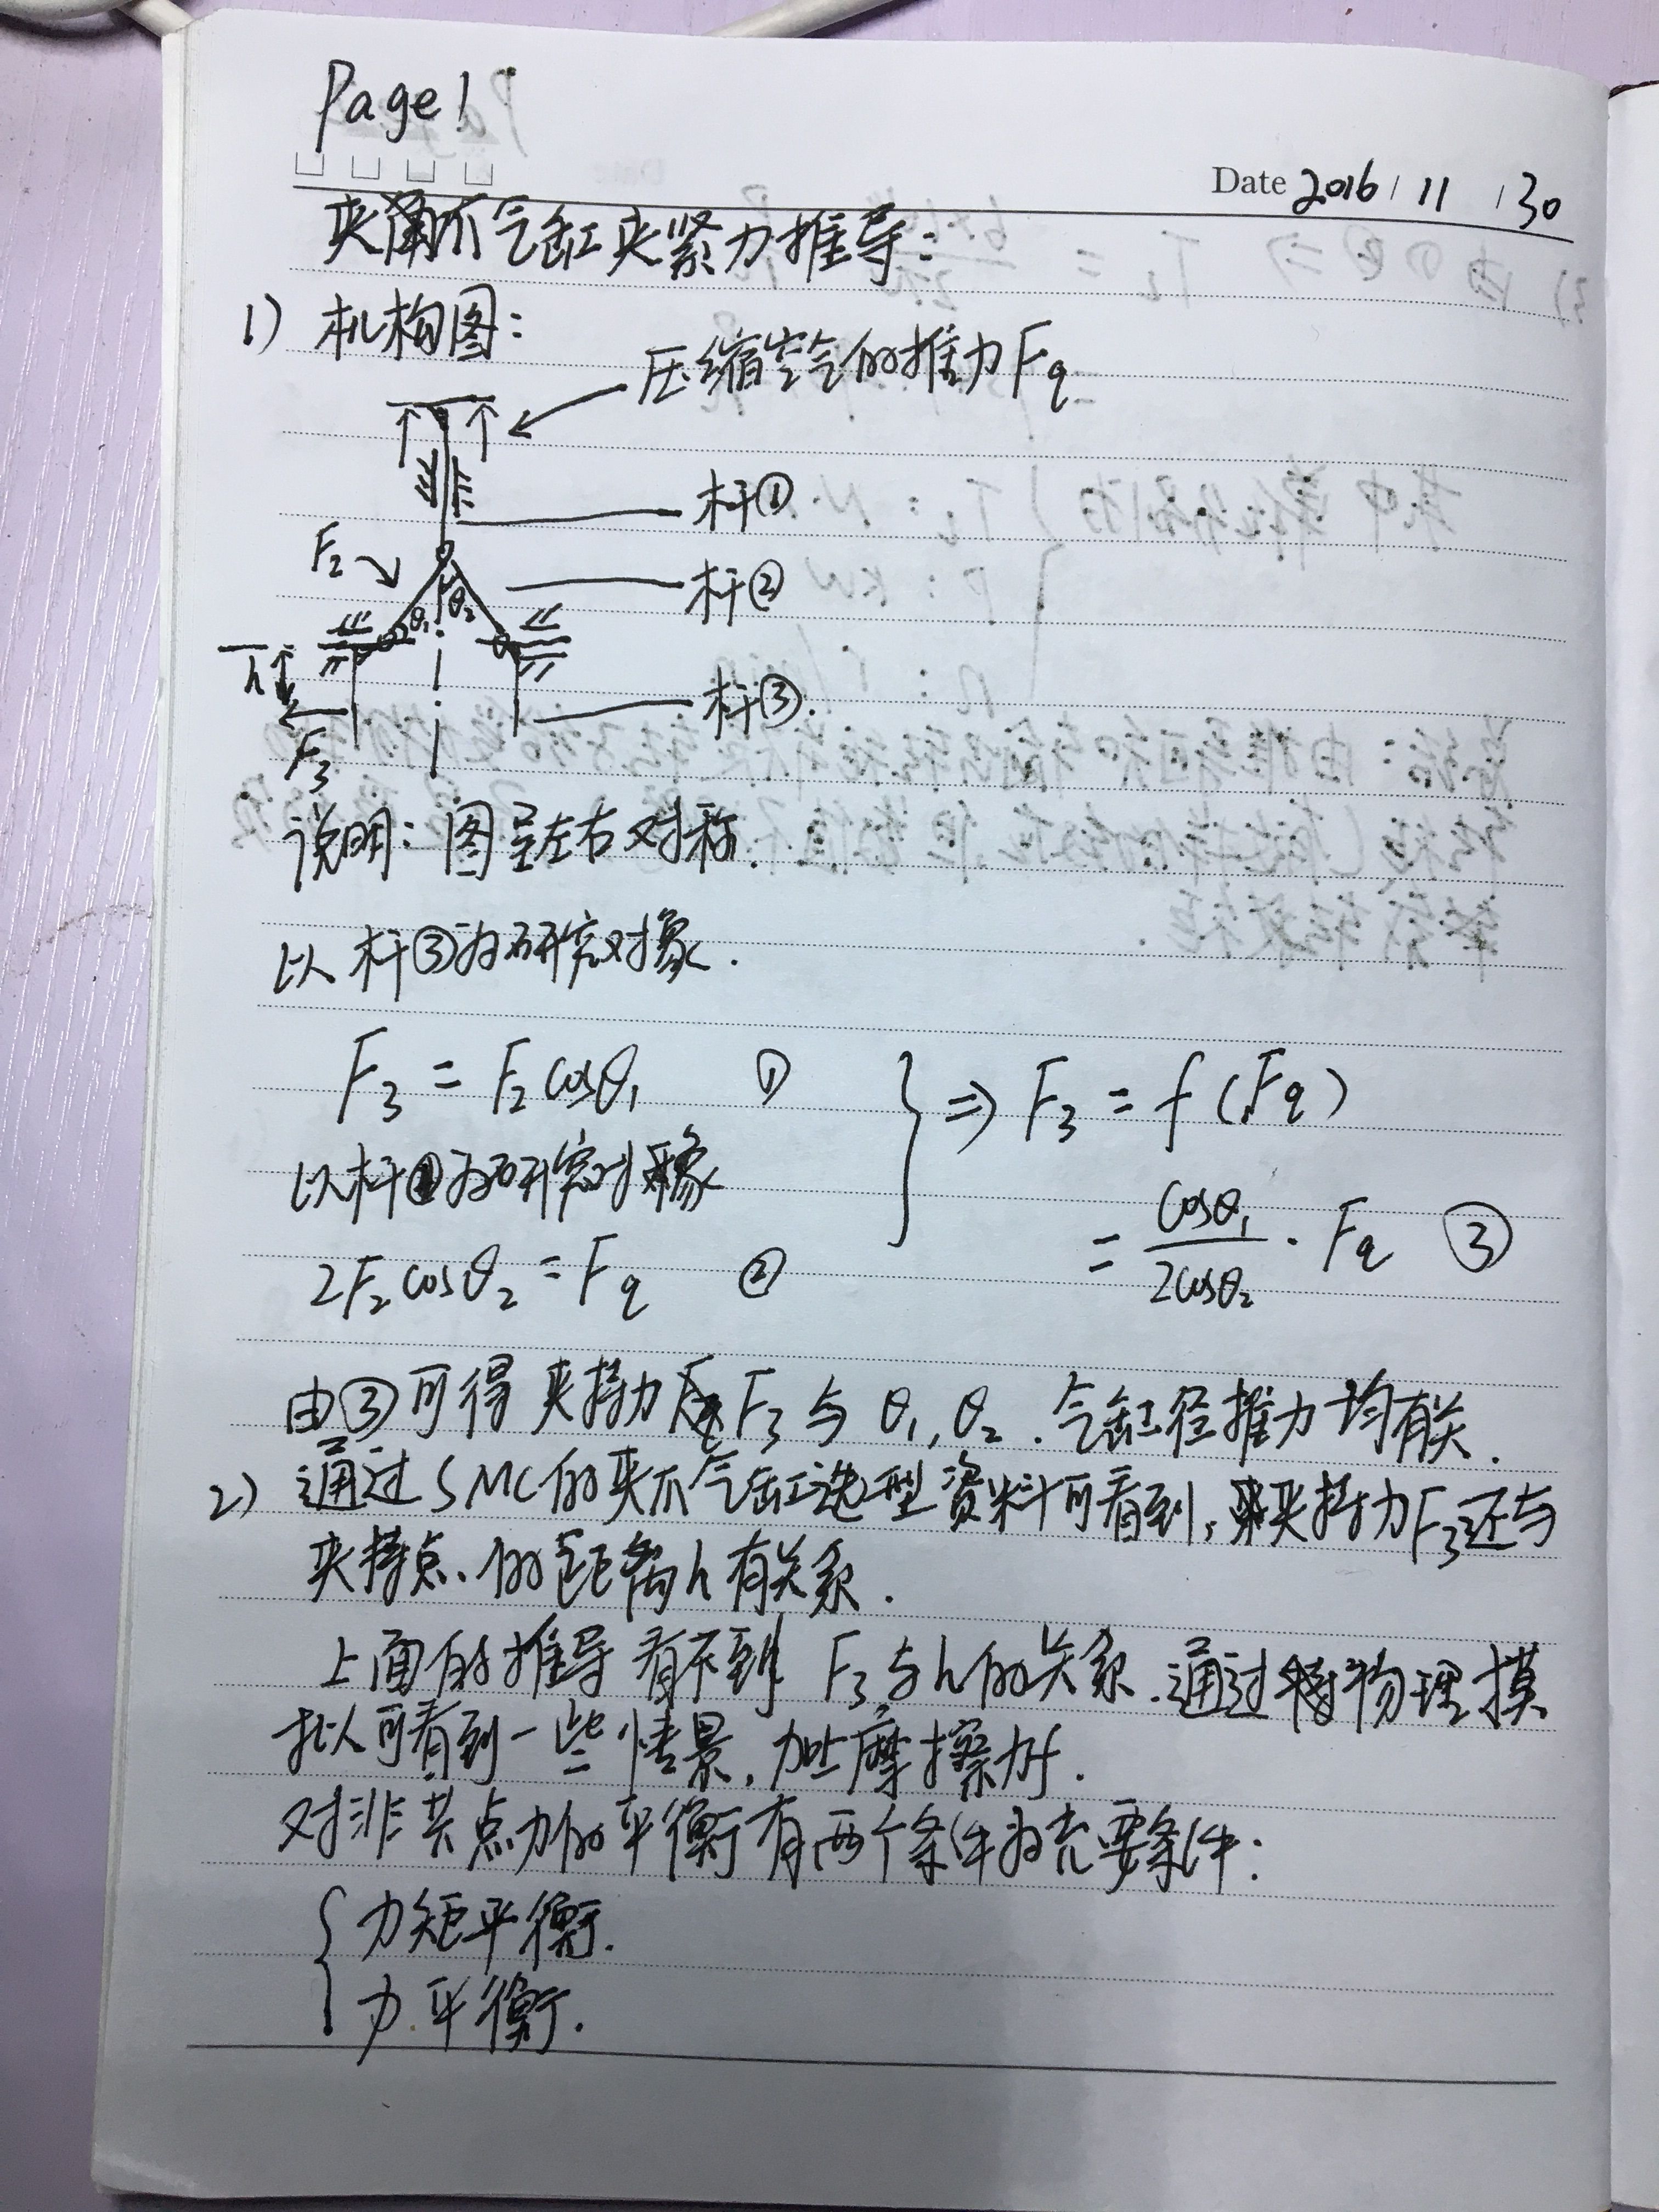 Page 1
Date 2016 / 11 / 30
夹爪气缸夹紧力推导:
1) 机构图:
压缩空气的推力Fq
杆①
F₂
杆②
θ₁ θ₂
h
杆③.
F₃
说明: 图呈左右对称.
以杆③为研究对象.
F₃ = F₂cosθ₁ ①
} ⇒ F₃ = f(Fq)
以杆①为研究对象
= cosθ₁/2cosθ₂ · Fq ③
2F₂cosθ₂ = Fq ②
由③可得 夹持力F₃与 θ₁, θ₂. 气缸径推力均有关.
2) 通过SMC的夹爪气缸选型资料可看到, 夹持力F₃还与
夹持点的距离h有关系.
上面的推导看不到 F₃与h的关系. 通过物理摸
拟可看到一些情景, 加上摩擦力f.
对非共点力的平衡有两个条件为充要条件:
{ 力矩平衡.
力平衡.